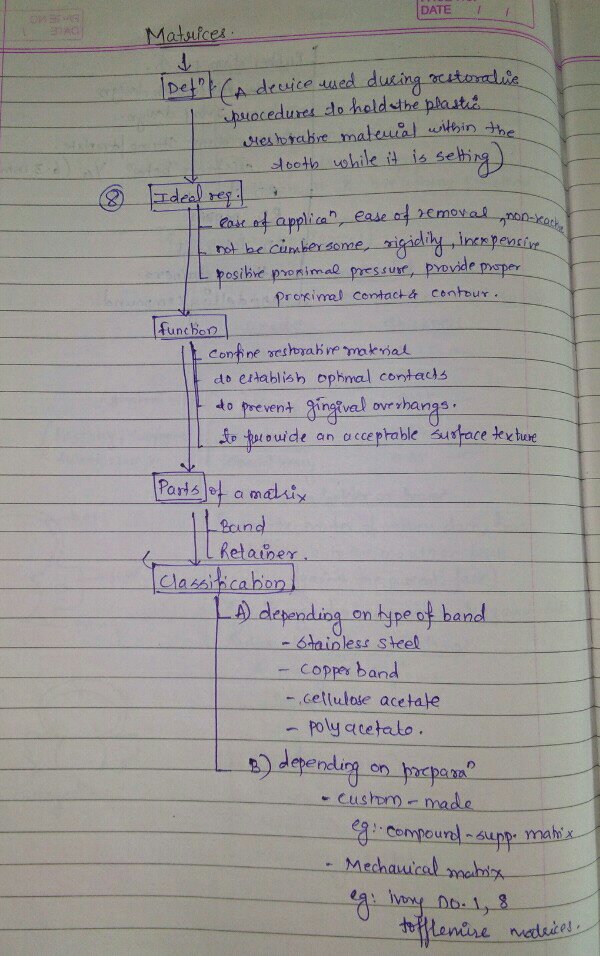 DATE / /
Matrices.
Defⁿ: (A device used during restorative
procedures to hold the plastic
restorative material within the
tooth while it is setting)
⑧ Ideal req:
ease of applicaⁿ, ease of removal, non-
not be cumbersome, rigidity, inexpensive
positive proximal pressure, provide proper
proximal contact & contour.
function
- confine restorative material
- to establish optimal contacts
- to prevent gingival overhangs.
to provide an acceptable surface texture
Parts of a matrix
Band
Retainer.
Classification
A) depending on type of band
- stainless steel
- copper band
- cellulose acetate
- polyacetate.
B) depending on preparaⁿ
- custom-made
eg: compound-supp. matrix
- Mechanical matrix
eg: ivory no. 1, 8
tofflemire matrices.